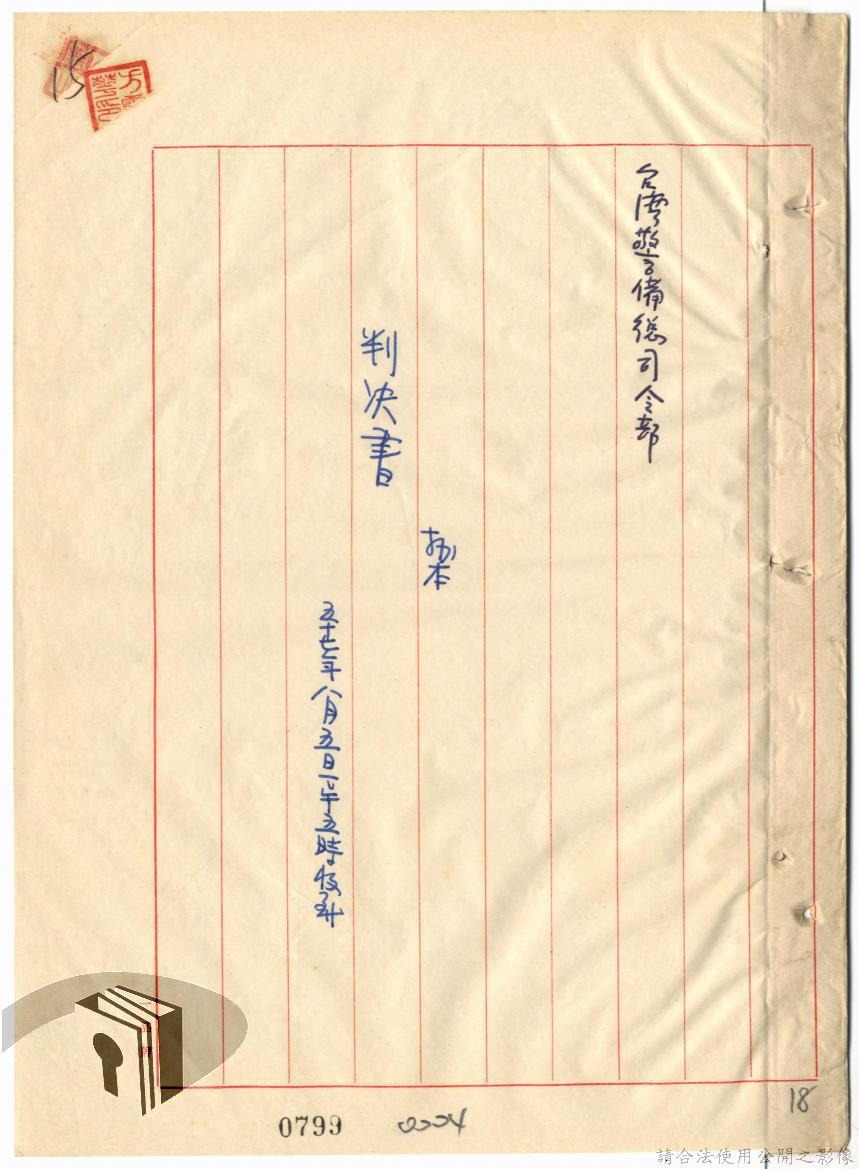 台湾警备總司令部
抄本
判决書
五十七年八月五日下午五時收到
15
18
0799
0004
請合法使用公開之影像